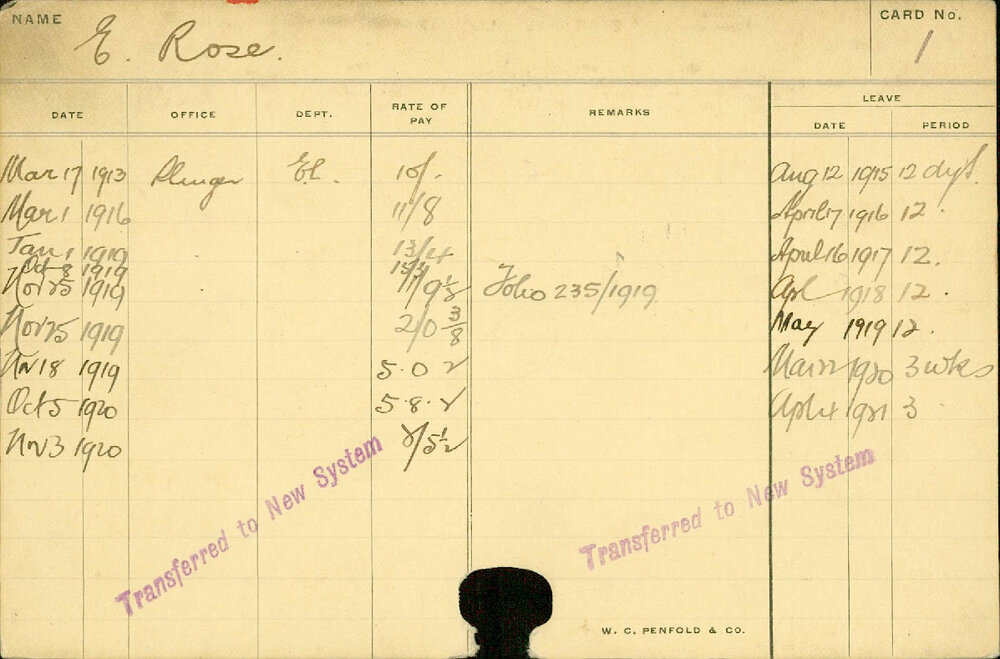 NAME E. Rose. CARD No. 1
LEAVE
DATE OFFICE DEPT. RATE OF PAY REMARKS DATE PERIOD
Mar 17 1913 El. 10/. Aug 12 1915 12 dys.
Mar 1 1916 11/8 April 17 1916 12.
Jan 1 1919 13/4 April 16 1917 12.
Oct 8 1919
Nov 25 1919 1/9½ Folio 235/1919 Apl 1918 12.
Nov 25 1919 2/0 3/8 May 1919 12.
Nov 18 1919 5.0.2 Mar 22 1920 3 wks
Oct 5 1920 5.8.2 Apl 4 1921 3
Nov 3 1920 2/5½
Transferred to New System
Transferred to New System
W. C. PENFOLD & CO.